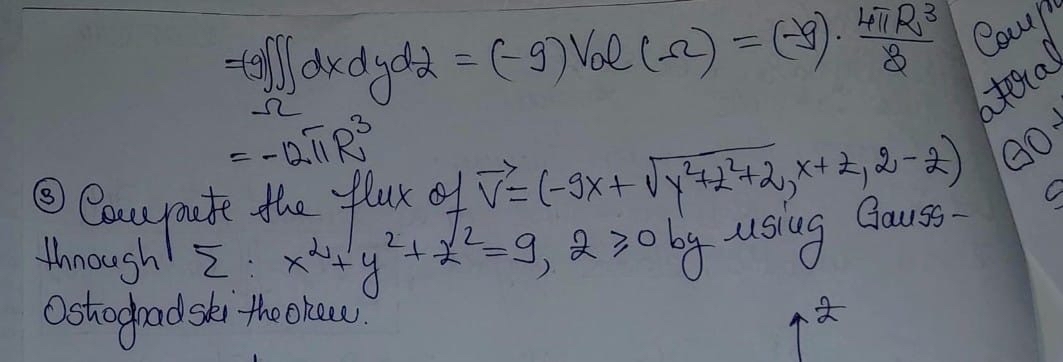 =(-9)∭dxdydz = (-9)Vol(Ω) = (-9)·4πR³/3
Ω
= -12πR³
③ Compute the flux of V⃗=(-9x+√(y²+z²+2), x+z, 2-z)
through Σ: x²+y²+z²=9, z≥0 by using Gauss-
Ostrogradski theorem.
z